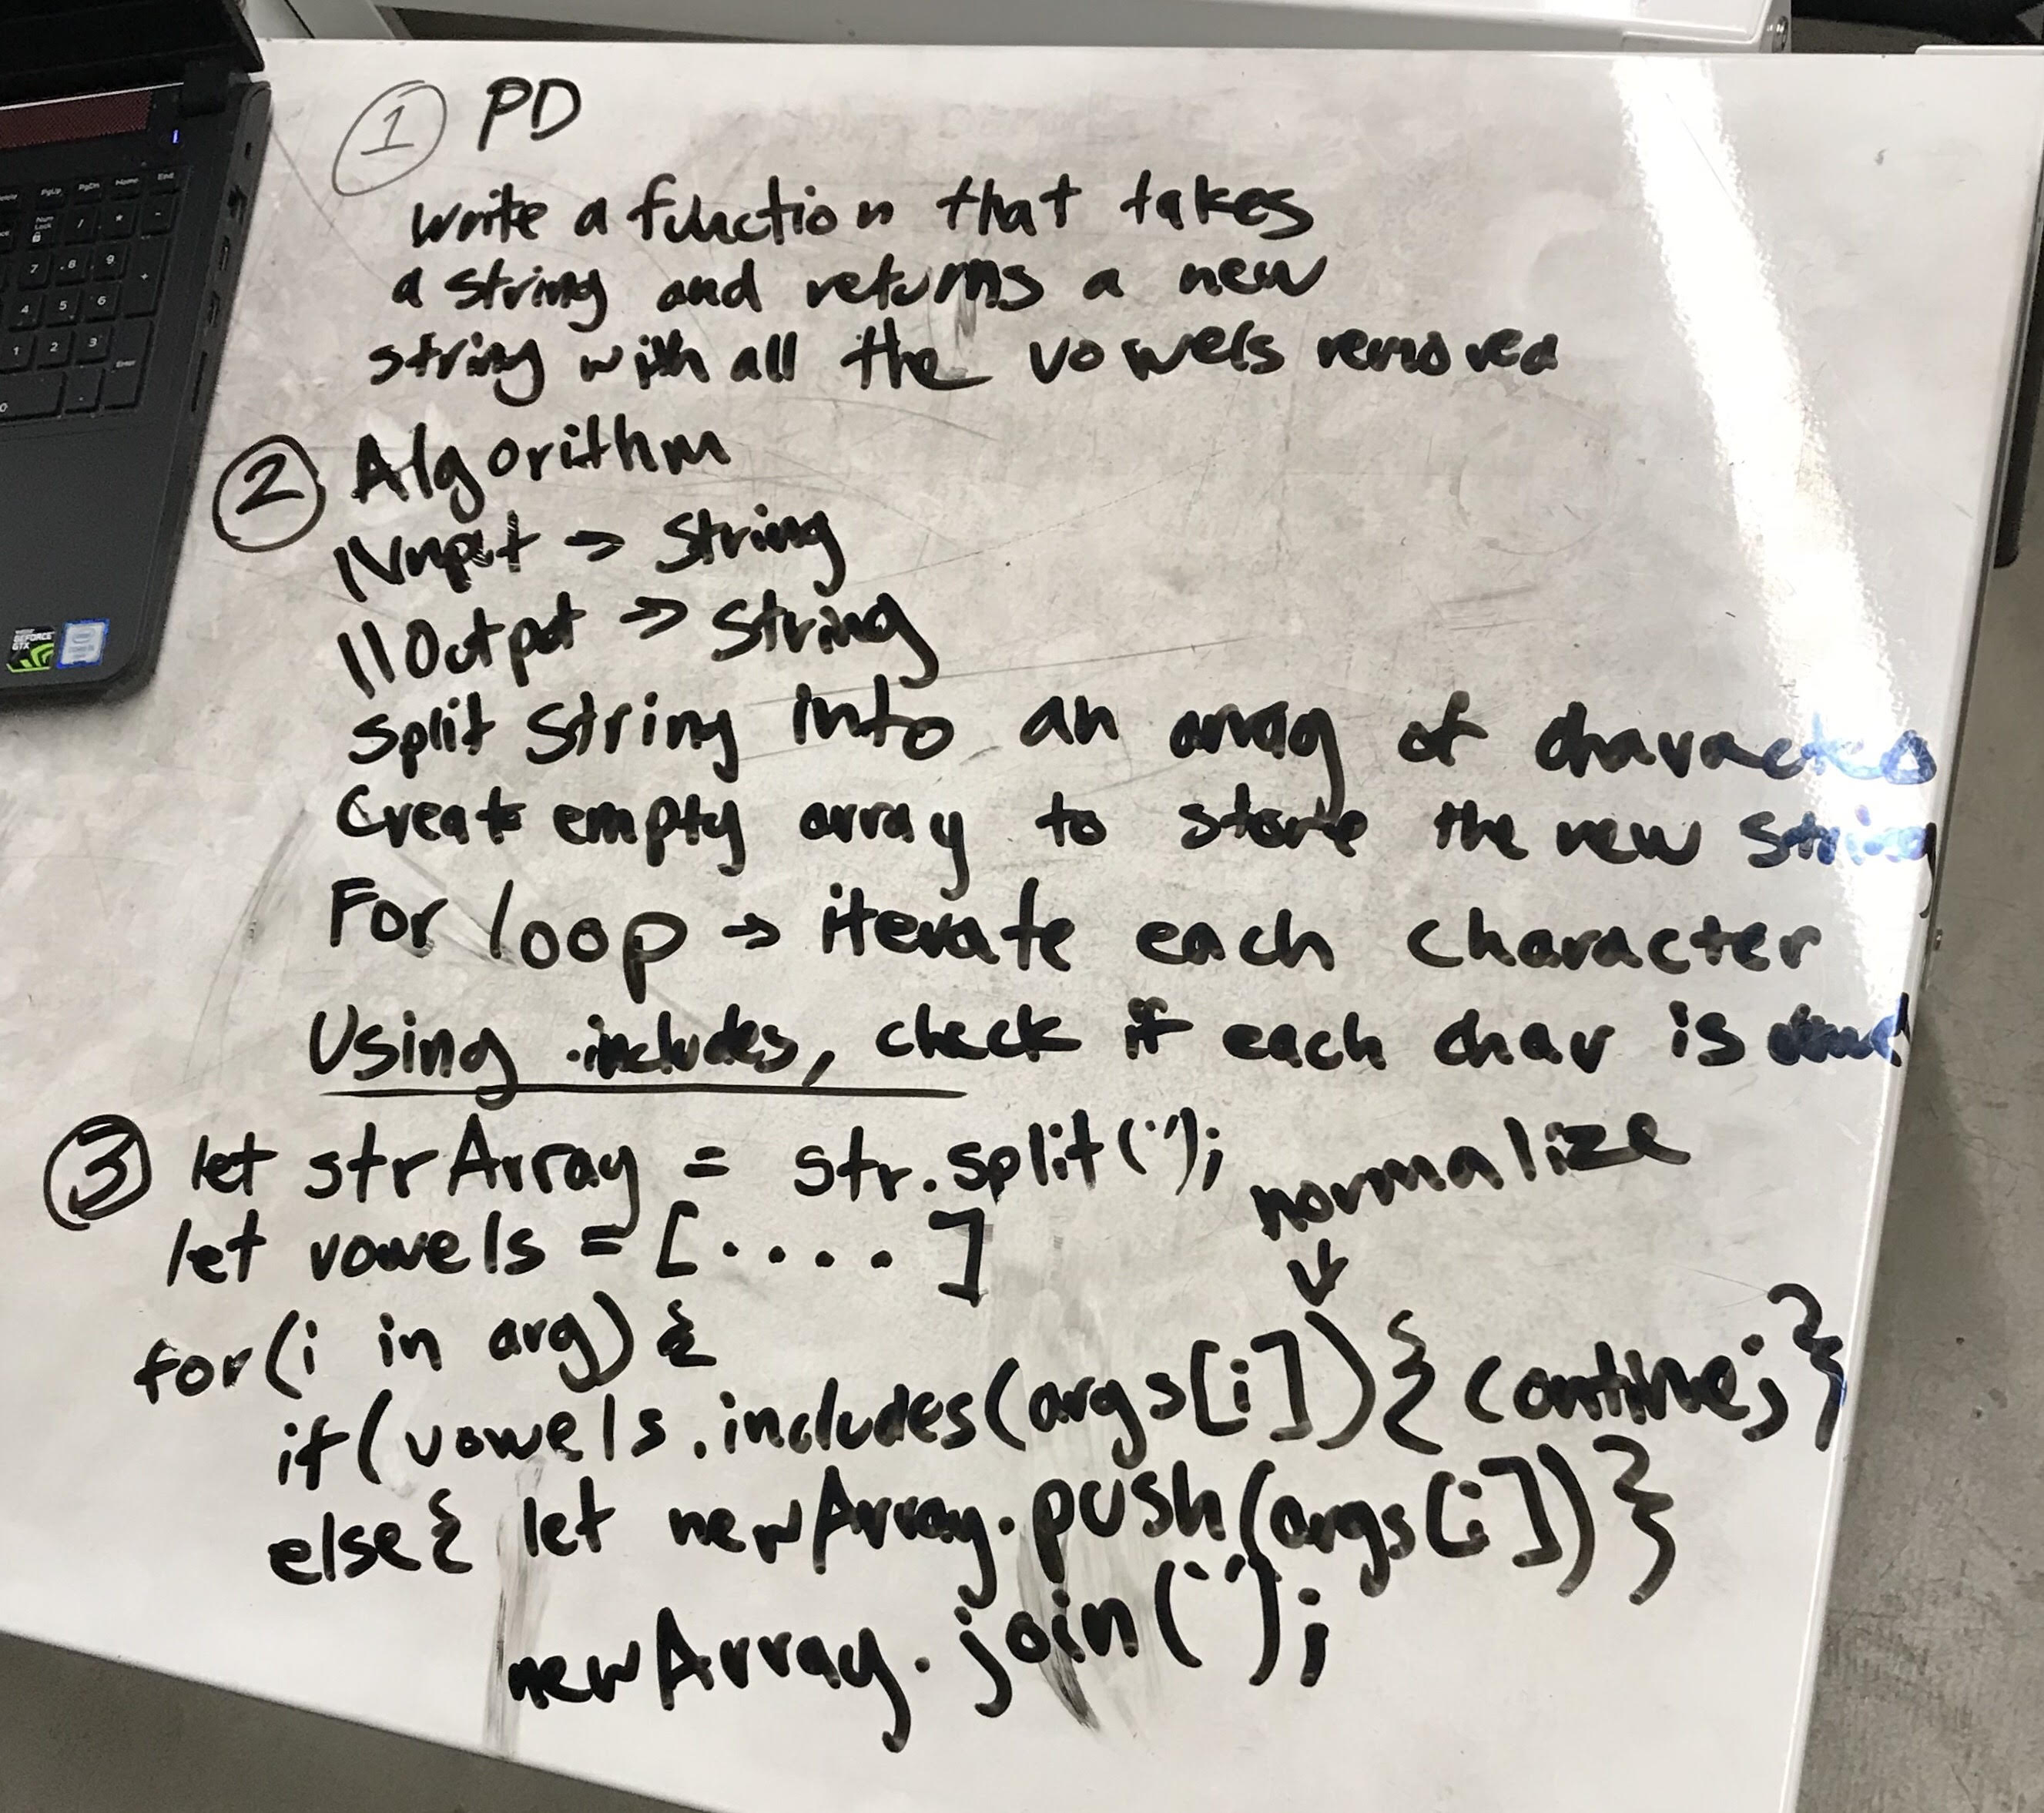 ① PD
write a function that takes
a string and returns a new
string with all the vowels removed
② Algorithm
//Input → String
//Output → String
Split string into an array of characters
Create empty array to store the new string
For loop → iterate each character
Using .includes, check if each char is
③ let strArray = str.split('');
normalize
↓
let vowels = [....]
for(i in arg) {
if(vowels.includes(args[i])){continue;}
else{ let newArray.push(args[i])}
newArray.join('');
PgUp PgDn Home End
Num Lock / * -
7 8 9 +
4 5 6
1 2 3 Enter
0 .
GEFORCE GTX